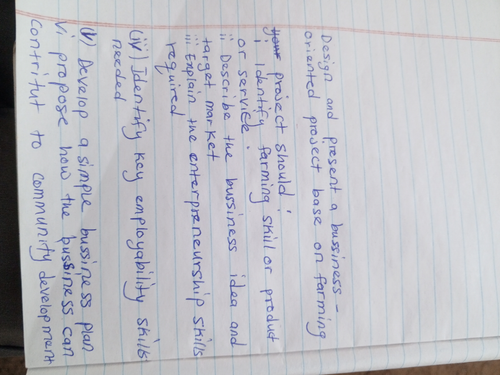 Design and present a bussiness -
oriented project base on farming
project should:
i Identify farming skill or product
or service.
ii Describe the bussiness idea and
target market
iii Explain the enterpreneurship skills
required
(iv) Identify key employability skills
needed
(v) Develop a simple bussiness plan
vi propose how the bussiness can
contritut to community development